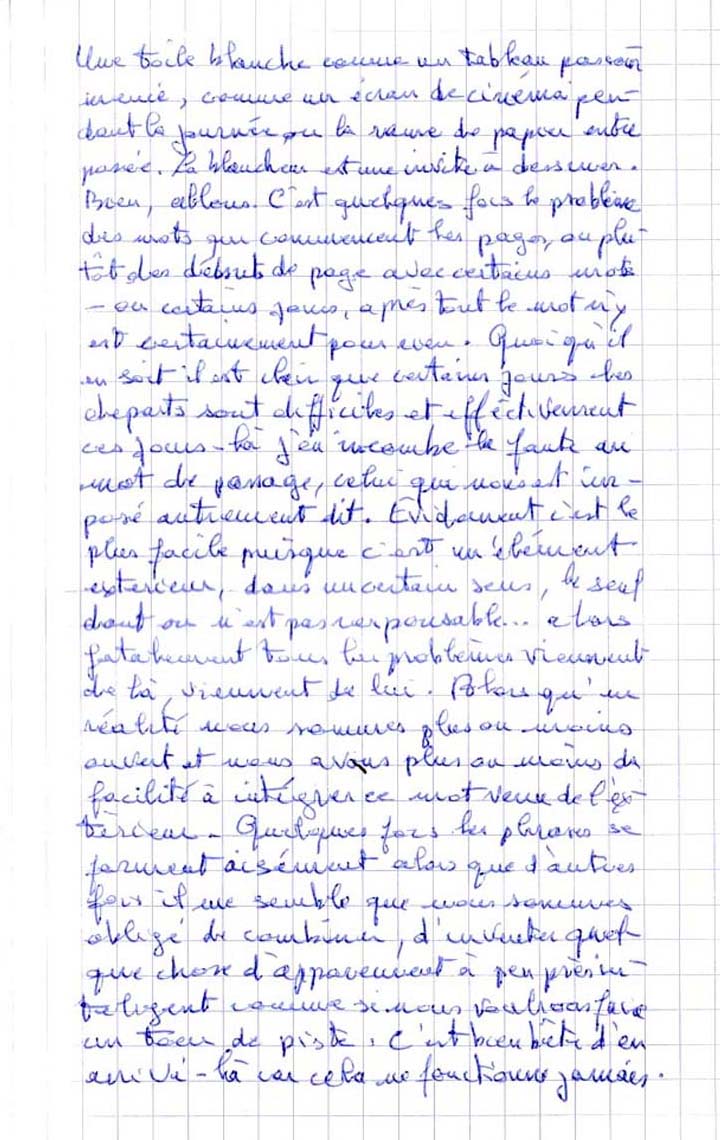 Une toile blanche comme un tableau pas encor
inventé, comme un écran de cinéma pen-
dant la journée, ou la rame de papier entre
posée. La blancheur est une invite à dessiner.
Bien, allons. C'est quelques fois le problème
des mots qui commencent les pages, ou plu-
tôt des débuts de page avec certains mots
- ou certains jours, après tout le mot n'y
est certainement pour rien. Quoiqu'il
en soit il est clair que certains jours les
départs sont difficiles et effectivement
ces jours-là j'en incombe la faute au
mot de passage, celui qui nous est im-
posé autrement dit. Evidement c'est le
plus facile puisque c'est un élément
exterieur, dans un certain sens, le seul
dont on n'est pas responsable... alors
fatalement tous les problèmes viennent
de là, viennent de lui. Alors qu'en
réalité nous sommes plus ou moins
ouvert et nous avons plus ou moins de
facilité à intégrer ce mot venu de l'ex-
térieur - Quelques fois les phrases se
forment aisément alors que d'autres
fois il me semble que nous sommes
obligé de combiner, d'inventer quel-
que chose d'apparemment à peu près in-
teligent comme si nous voulions faire
un tour de piste. C'est bien bête d'en
arrivé-là car cela ne fonctionne jamais.